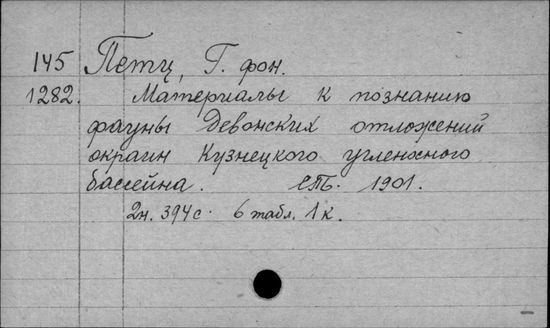 145 Петц, Г. фон.
1282. Материалы к познанию
фауны Девонских отложений
окраин Кузнецкого угленосного
бассейна. СПБ. 1901.
2н. 394 с. 6 табл. 1 к.